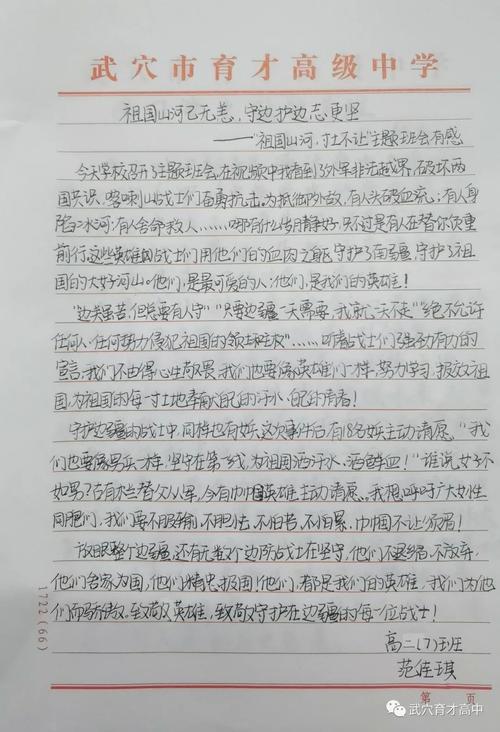 武穴市育才高级中学
祖国山河已无恙，守边护边志更坚
——"祖国山河，寸土不让"主题班会有感
今天学校召开了主题班会，在视频中我看到了外军非法越界，破坏两
国共识，喀喇昆仑山战士们奋勇抗击。为抵御外敌，有人头破血流；有人身
陷冰河；有人舍命救人……哪有什么岁月静好，只不过是有人在替你负重
前行。这些英雄的战士们用他们的血肉之躯，守护了面疆，守护了祖
国的大好河山。他们，是最可爱的人；他们，是我们的英雄！
"边关虽苦，但总要有人守""只要边疆一天需要，我就一天不走""绝不允许
任何人、任何势力侵犯祖国的领土主权"……听着战士们强劲有力的
宣言，我们不由得心生敬畏，我们也要像英雄们一样，努力学习，报效祖
国，为祖国的每一寸土地奉献自己的汗水、自己的青春！
守护边疆的战士中，同样也有女兵，这次事件后有18名女兵主动请愿。"我
们也要像男兵一样，坚守在第一线，为祖国洒汗水、洒鲜血！"谁说女子不
如男？古有木兰替父从军，今有巾帼英雄主动请愿。我想呼吁广大女性
同胞们，我们要不服输，不胆怯，不怕苦，不怕累，巾帼不让须眉！
放眼整个边疆，还有无数个边防战士在坚守，他们不退缩，不放弃，
他们舍家为国，他们精忠报国！他们，都是我们的英雄，我们为他
们而骄傲。致敬英雄，致敬守护在边疆的每一位战士！
高二(7)班
范佳琪
1722(66)
第 页
武穴育才高中